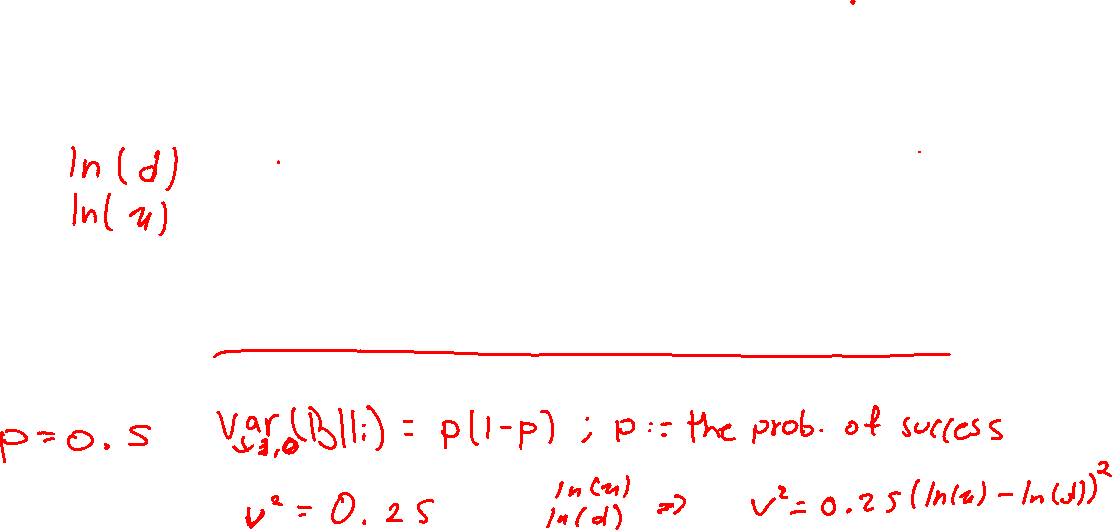 ln(d)
ln(u)
p=0.5 Var(Blli) = p(1-p) ; p := the prob. of success
↓1,0
v² = 0.25 ln(u) ln(d) => v² = 0.25(ln(u) - ln(d))²